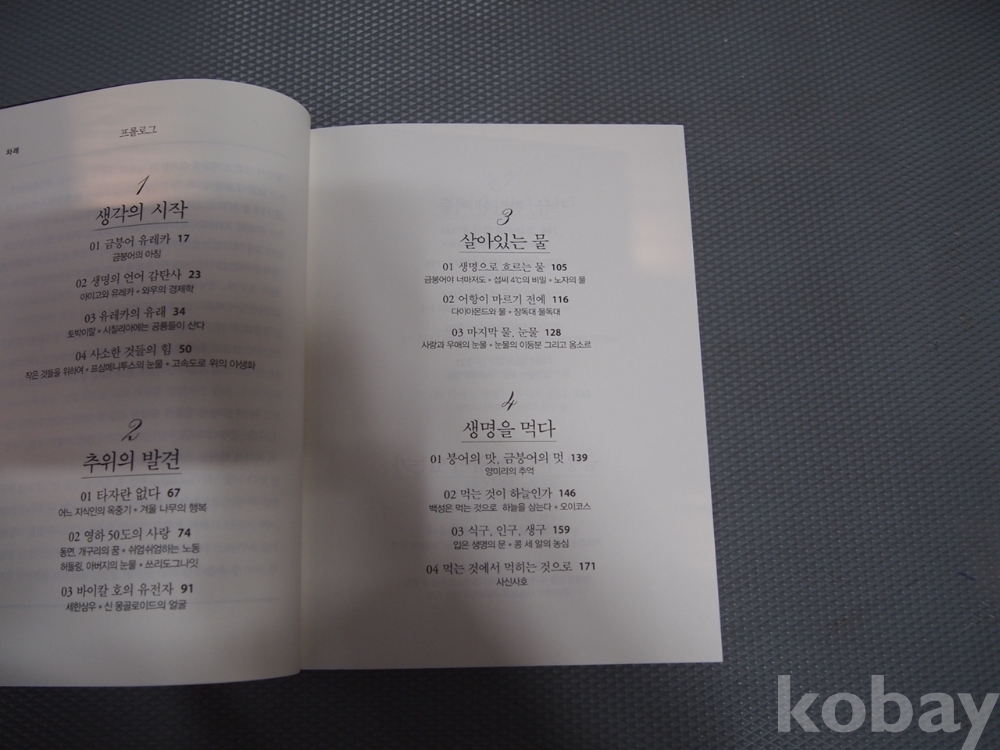 차례
프롤로그
1
생각의 시작
01 금붕어 유레카 17
금붕어의 아침
02 생명의 언어 감탄사 23
아이고와 유레카 • 와우의 경제학
03 유레카의 유래 34
토박이말 • 시칠리아에는 공룡들이 산다
04 사소한 것들의 힘 50
작은 것들을 위하여 • 프삼메니투스의 눈물 • 고속도로 위의 야생화
2
추위의 발견
01 타자란 없다 67
어느 지식인의 옥중기 • 겨울 나무의 행복
02 영하 50도의 사랑 74
동면, 개구리의 꿈 • 쉬엄쉬엄하는 노동
허들링, 아버지의 눈물 • 쓰리도그나잇
03 바이칼 호의 유전자 91
세한삼우 • 신 몽골로이드의 얼굴
3
살아있는 물
01 생명으로 흐르는 물 105
금붕어야 너마저도 • 섭씨 4℃의 비밀 • 노자의 물
02 어항이 마르기 전에 116
다이아몬드와 물 • 장독대 물독대
03 마지막 물, 눈물 128
사랑과 우애의 눈물 • 눈물의 이동분 그리고 옴소르
4
생명을 먹다
01 붕어의 맛, 금붕어의 멋 139
양미리의 추억
02 먹는 것이 하늘인가 146
백성은 먹는 것으로 하늘을 삼는다 • 오이코스
03 식구, 인구, 생구 159
입은 생명의 문 • 콩 세 알의 농심
04 먹는 것에서 먹히는 것으로 171
사신사호
kobay